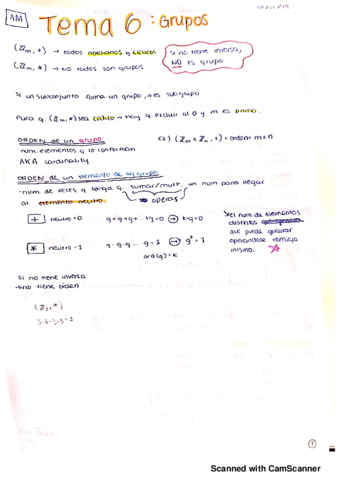 AM
Tema 6: Grupos
(ℤm, +) → todos abelianos y cíclicos
(ℤm, *) → No todos son grupos
si no tiene inversa,
NO es grupo
Si un subconjunto forma un grupo, → es subgrupo
Para q. (ℤm, *) sea cíclico → hay q excluir al 0 y m es primo.
ORDEN de un grupo
num. elementos q lo conforman
AKA cardinality
ej) (ℤm × ℤn, +) = orden = m×n
ORDEN de un elemento de un grupo
-num de veces q tenga q sumar/mult. un num para llegar
al elemento neutro. → operar
+ neutro = 0 g+g+g+...+g=0 → k·g=0
* neutro = 1 g·g·g...·g=1 → g^k = 1
ord(g)=k
*el num de elementos
distintos
que puede generar
operándose consigo
mismo.
si no tiene inversa
→ no tiene orden
Scanned with CamScanner